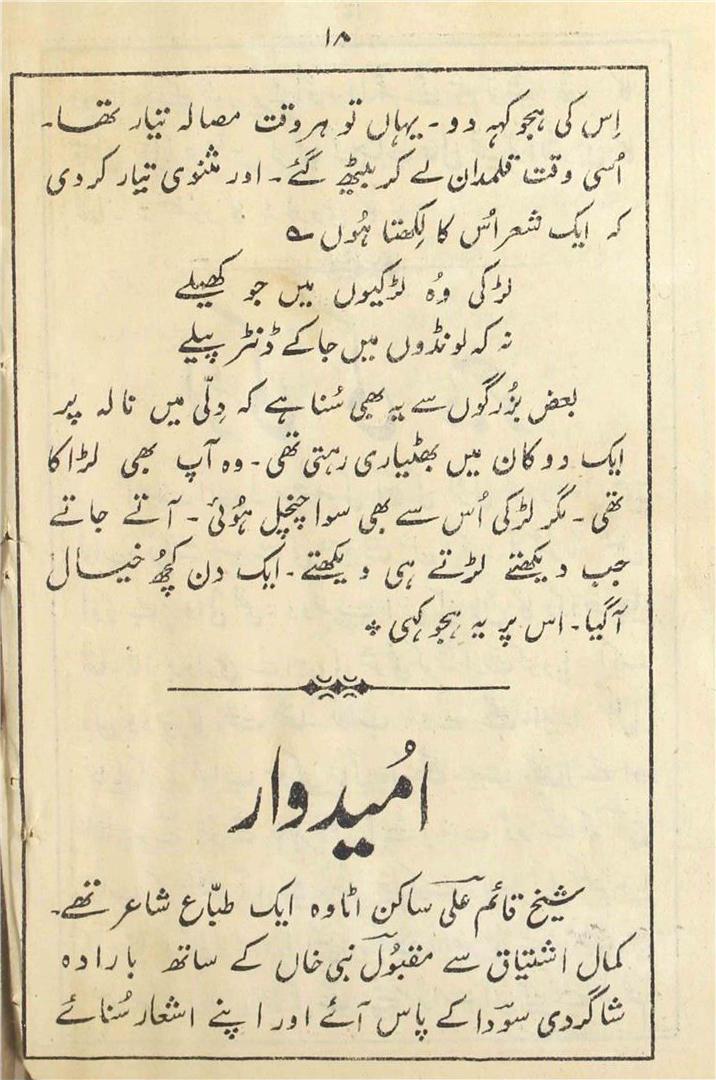 ۱۸
اِس کی ہجو کہہ دو۔ یہاں تو ہر وقت مصالہ تیار تھا۔
اُسی وقت قلمدان لے کر بیٹھ گئے۔ اور مثنوی تیار کر دی
کہ ایک شعر اُس کا لِکھتا ہُوں ؎
لڑکی وُہ لڑکیوں میں جو کھیلے
نہ کہ لونڈوں میں جا کے ڈنٹر پیلے
بعض بزُرگوں سے یہ بھی سُنا ہے کہ دِلّی میں نالہ پر
ایک دوکان میں بھٹیاری رہتی تھی۔ وہ آپ بھی لڑاکا
تھی۔ مگر لڑکی اُس سے بھی سوا چنچل ہُوئی۔ آتے جاتے
جب دیکھتے لڑتے ہی دیکھتے۔ ایک دن کچھُ خیال
آگیا۔ اس پر یہ ہجو کہی ٭
اُمیدوار
شیخ قائم علی ساکن اٹاوہ ایک طبّاع شاعر تھے۔
کمال اشتیاق سے مقبُول نبی خاں کے ساتھ بارادہ
شاگردی سوؔدا کے پاس آئے اور اپنے اشعار سُنائے